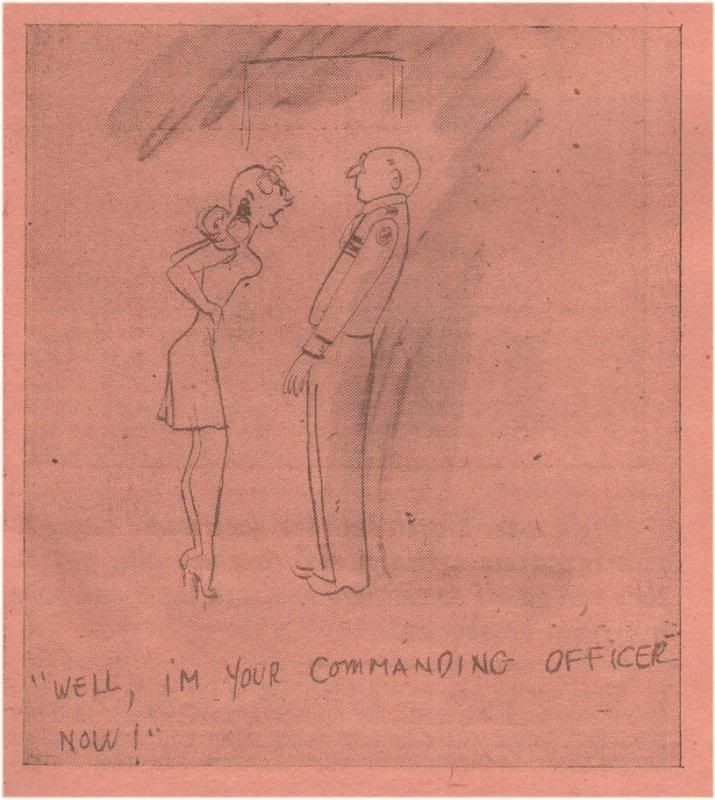 "WELL, iM YOUR COMMANDING OFFICER
NOW!"